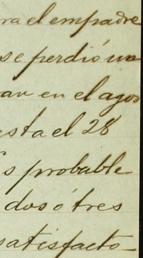 ra el empadre
se perdió un
an en el agos
sta el 28
s probable
dos ó tres
satisfacto-